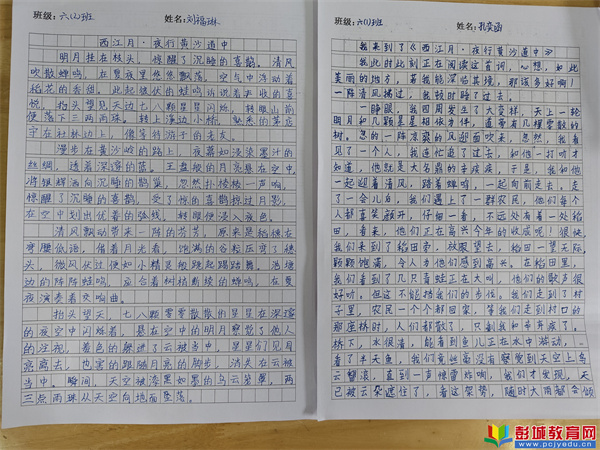 班级：六(1)班 姓名：刘福琳
西江月·夜行黄沙道中
明月挂在枝头，惊醒了沉睡的喜鹊。清风
吹散蝉鸣，在夏夜里悠悠飘荡。空气中浮动着
稻花的香甜。此起彼伏的蛙鸣诉说着丰收的喜
悦。抬头望见天边七八颗星星闪烁，转眼山前
便落下三两雨珠。转上溪边小桥，熟悉的茅店
守在社林边上，像等待游子的老友。
漫步在黄沙岭的路上，夜幕如浸染墨汁的
丝绸，透着深邃的蓝。玉盘般的月亮悬在空中，
将银辉洒向沉睡的鹊巢，忽然扑棱棱一声响，
惊醒了沉睡的喜鹊。受了惊的喜鹊掠过月影，
在空中划出优美的弧线，转眼便没入夜色。
清风飘动带来一阵的芬芳，原来是稻穗在
弯腰低语。借着月光看，饱满的谷粒压弯了穗
头，微风伏过便如小精灵般跳起踢踏舞。池塘
边的阵阵蛙鸣，应合着树梢断续的蝉鸣，在夏
夜演奏着交响曲。
抬头望天，七八颗零零散散的星星在深邃
的夜空中闪烁着。悬在空中的明月察觉了他人
的注视，着色的躲进了云被当中。星星们见月
亮离去，也害的跟随月亮的脚步，消失在云被
当中。瞬间，天空被漆黑如墨的乌云笼罩，两
三点雨珠从天空向地面坠落。
班级：六(1)班 姓名：孔奕涵
我来到了《西江月·夜行黄沙道中》
我此时此刻正在阅读这首词，心想，如此
美丽的地方，要我能深临其境，那该多好啊！
一阵清风拂过，我顿时睡了过去。
一睁眼，我四周发生了大变样，天上一轮
明月和几颗星星相依为伴，道旁有几棵零散的
树。忽的一阵凉爽的风迎面吹来，忽然，我看
见了一个人，我连忙追了过去，和他一打听才
知道，他就是大名鼎鼎的辛弃疾，于是，我和他
一起迎着清风，踏着蝉鸣，一起向前走去。走
了一会儿后，我们遇上了一群农民，他们每个
人都喜笑颜开，仔细一看，不远处有着一处稻
田，看来，他们正在高兴今年的收成呢！很快，
我们来到了稻田旁，放眼望去，稻田一望无际，
颗颗饱满，令人为他们感到高兴。在稻田里，
我们看到了几只青蛙正在大叫，他们的歌声很
好听。但这不能挡我们的步伐。我们走到了村
子里，农民一个个都回家，等我们走到村口的
那座桥时，人们都散了，只剩我和辛弃疾了。
桥下，水很清，能看到鱼儿正在水中游动，
看了半天鱼，我们竟丝毫没有察觉到天空上乌
云翻滚，直到一声惊雷炸响，我们才发现，天
已被云朵遮住了，看这架势，随时大雨都会倾
彭城教育网
www.pcjyedu.cn